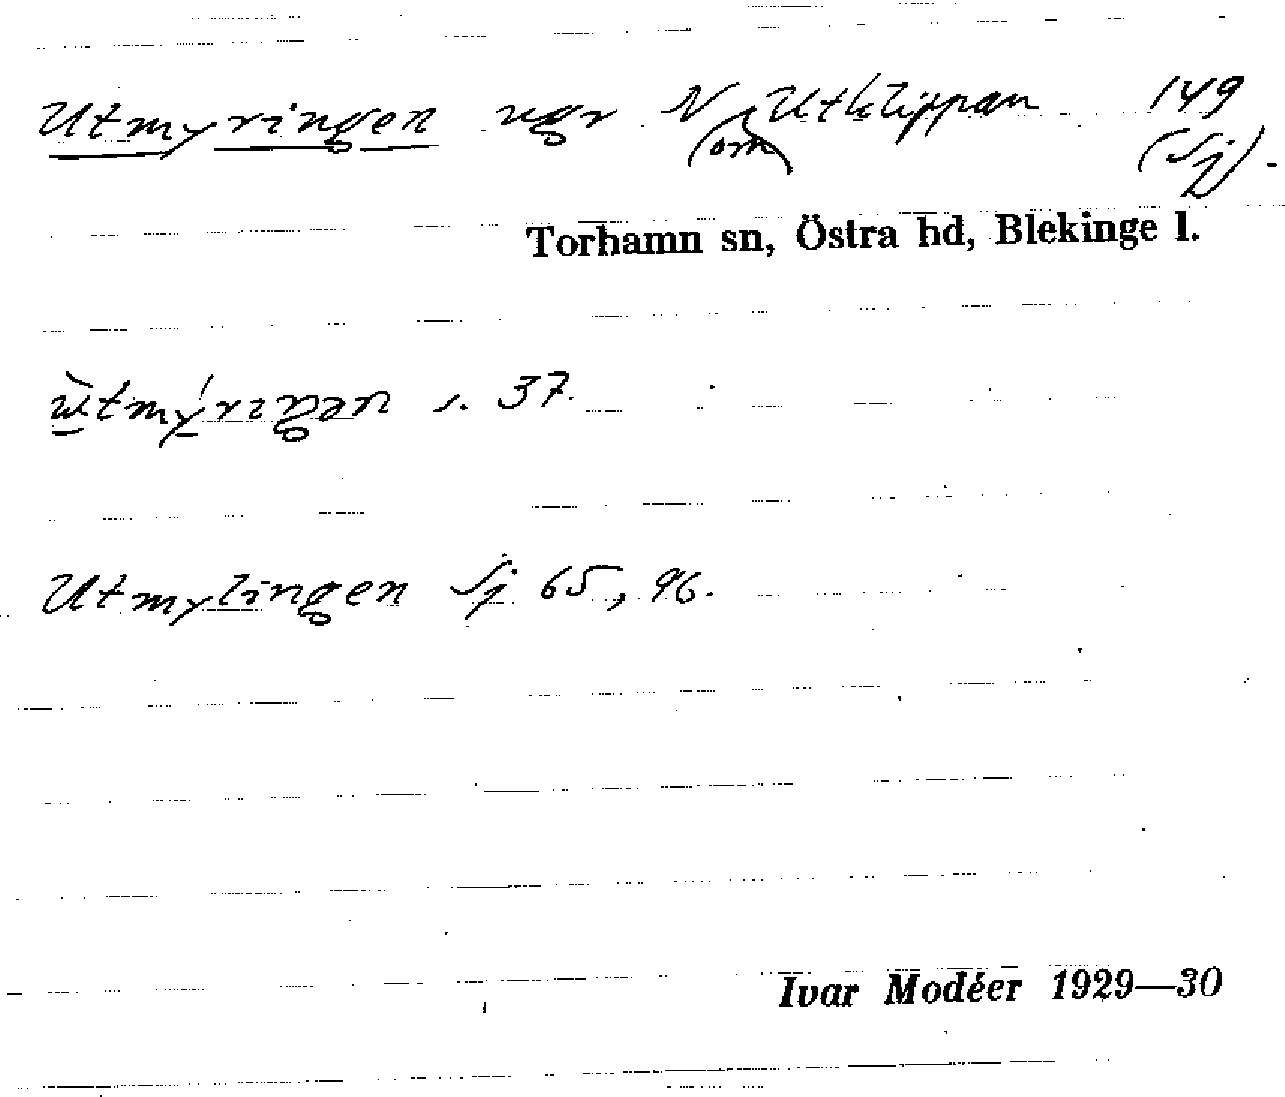 Utmyringen ngr N (om) Utklippan 149
(Sj).
Torhamn sn, Östra hd, Blekinge l.
s. 37.
Utmylingen Sj 65, 96.
Ivar Modéer 1929—30